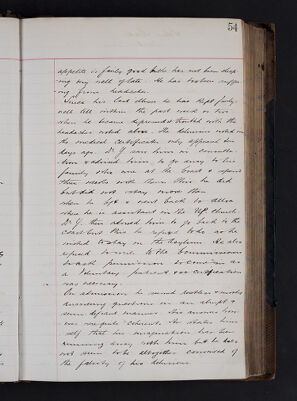 54
appetite is fairly good but he has not been sleep
ing very well of late. He has been suffer
ing from headache.
Since his last illness he has kept fairly
well till within the past week or two
when he became depressed & troubled with the
headaches noted above. The delusions noted in
the medical certificates only appeared two
days ago. Dr Y saw him in consulta
tion & advised him to go away to his
family who are at the coast & spend
three weeks with them. This he did
but did not stay more than
when he left & went back to
where he is assistant in the U.P. church.
Dr Y. then advised him to go back to the
coast but this he refused to do as he
wished to stay in the Asylum. He also
refused to write to the Commissioners
to ask permission to come in as
a Voluntary patient & so certification
was necessary.
On admission he seemed restless & unruly
answering questions in an abrupt &
semi defiant manner. His answers how
ever were quite coherent. He states him
self that his imagination has been
running away with him but he does
not seem to be altogether convinced of
the falsity of his delusions.